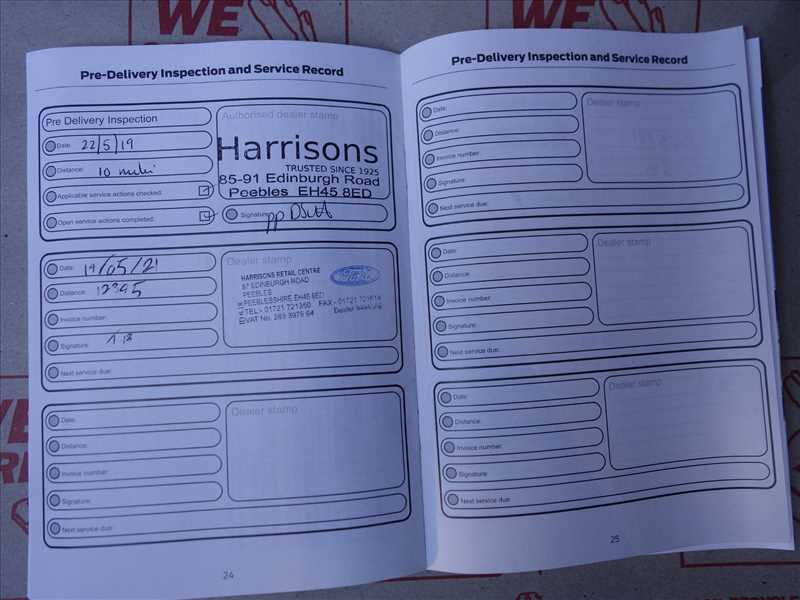 WE
WE
Pre-Delivery Inspection and Service Record
Pre Delivery Inspection
Date: 22/5/19
Distance: 10 miles
Applicable service actions checked:
Open service actions completed:
Authorised dealer stamp
Harrisons
TRUSTED SINCE 1925
85-91 Edinburgh Road
Peebles EH45 8ED
Signature:
Date: 19/05/21
Distance: 12395
Invoice number:
Signature:
Next service due:
Dealer stamp
HARRISONS RETAIL CENTRE
87 EDINBURGH ROAD
PEEBLES
PEEBLESSHIRE, EH45 8ED
TEL:- 01721 721350 FAX:- 01721
VAT No. 269 3975 64 Dealer
Ford
Date:
Distance:
Invoice number:
Signature:
Next service due:
Dealer stamp
24
Pre-Delivery Inspection and Service Record
Date:
Distance:
Invoice number:
Signature:
Next service due:
Dealer stamp
Date:
Distance:
Invoice number:
Signature:
Next service due:
Dealer stamp
Date:
Distance:
Invoice number:
Signature:
Next service due:
Dealer stamp
25